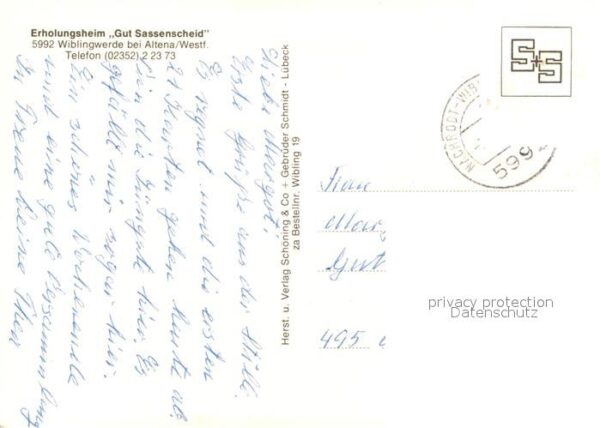 Erholungsheim „Gut Sassenscheid"
5992 Wiblingwerde bei Altena/Westf.
Telefon (02352) 2 23 73
Liebe Margot,
Erste Grüße aus der Stille.
Es regnet und die ersten
gehen heute ab.
bin die Jüngste hier. Es
gefällt mir sogar hier.
Ein schönes Wochenende
und eine gute Versammlung
In Treue Deine Thea
Herst. u. Verlag Schöning & Co + Gebrüder Schmidt - Lübeck
za Bestellnr. Wibling 19
S+S
NACHRODT-WIB
599
Frau
Marg
Gut
495
privacy protection
Datenschutz